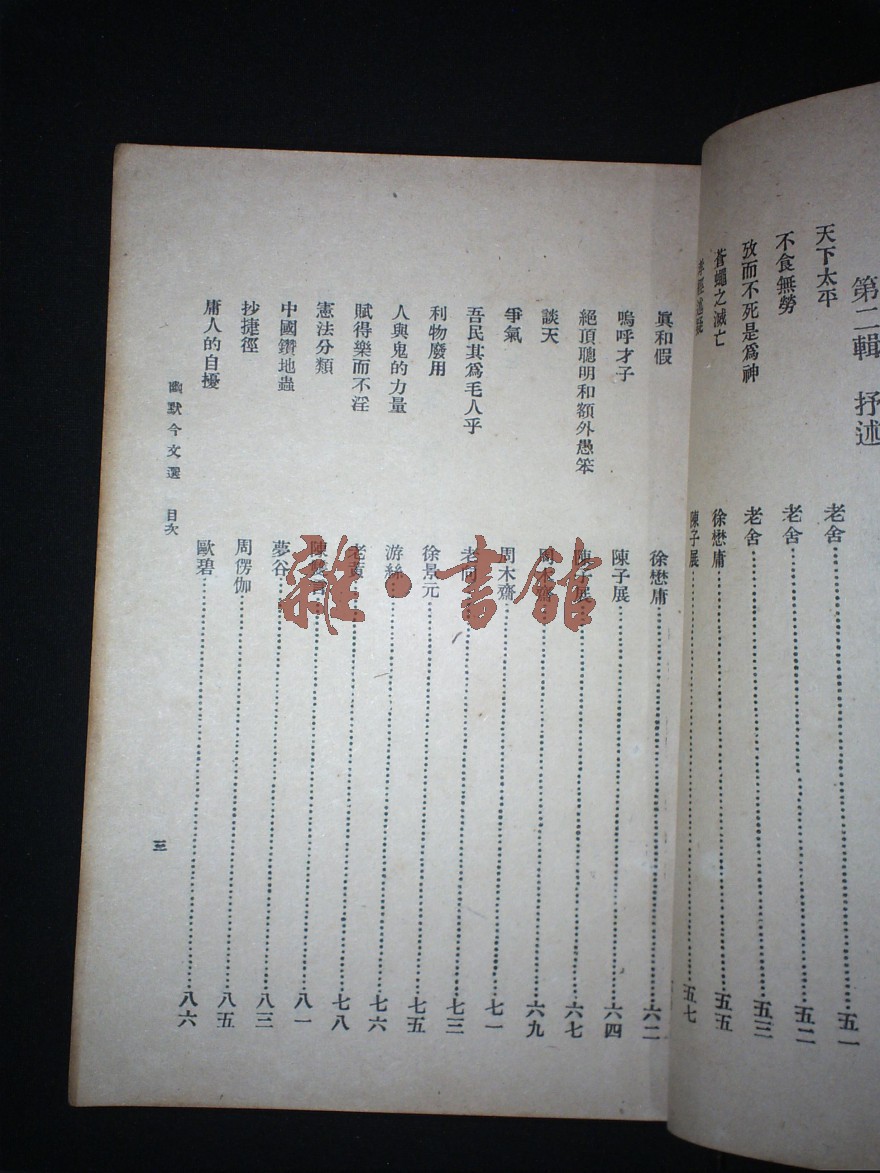 第二輯 抒述
天下太平 老舍 五一
不食無勞 老舍 五二
攷而不死是爲神 老舍 五三
蒼蠅之滅亡 徐懋庸 五五
陳子展 五七
眞和假 徐懋庸 六二
嗚呼才子 陳子展 六四
絕頂聰明和額外愚笨 陳子展 六七
談天 周木齋 六九
爭氣 周木齋 七一
吾民其爲毛人乎 老向 七三
利物廢用 徐景元 七五
人與鬼的力量 游絲 七六
賦得樂而不淫 老黃 七八
憲法分類 陳 八一
中國鑽地蟲 夢谷 八三
抄捷徑 周愣伽 八五
庸人的自擾 歐碧 八六
幽默今文選 目次
三
雜·書館